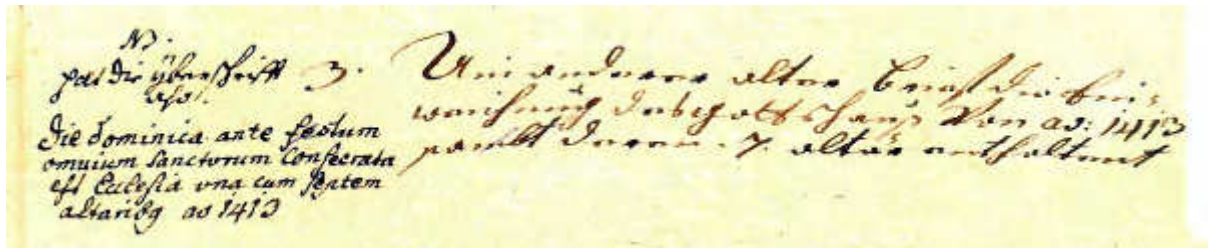 NB.
hat die yberschrifft
also.
Die Dominica ante festum
omnium Sanctorum Consecrata
est Ecclesia vna cum septem
altaribg ao 1413
3. Ein anderer alter brieff die Ein=
weichung des gottshaus von ao: 1413
sambt deren .7. altär enthaltent